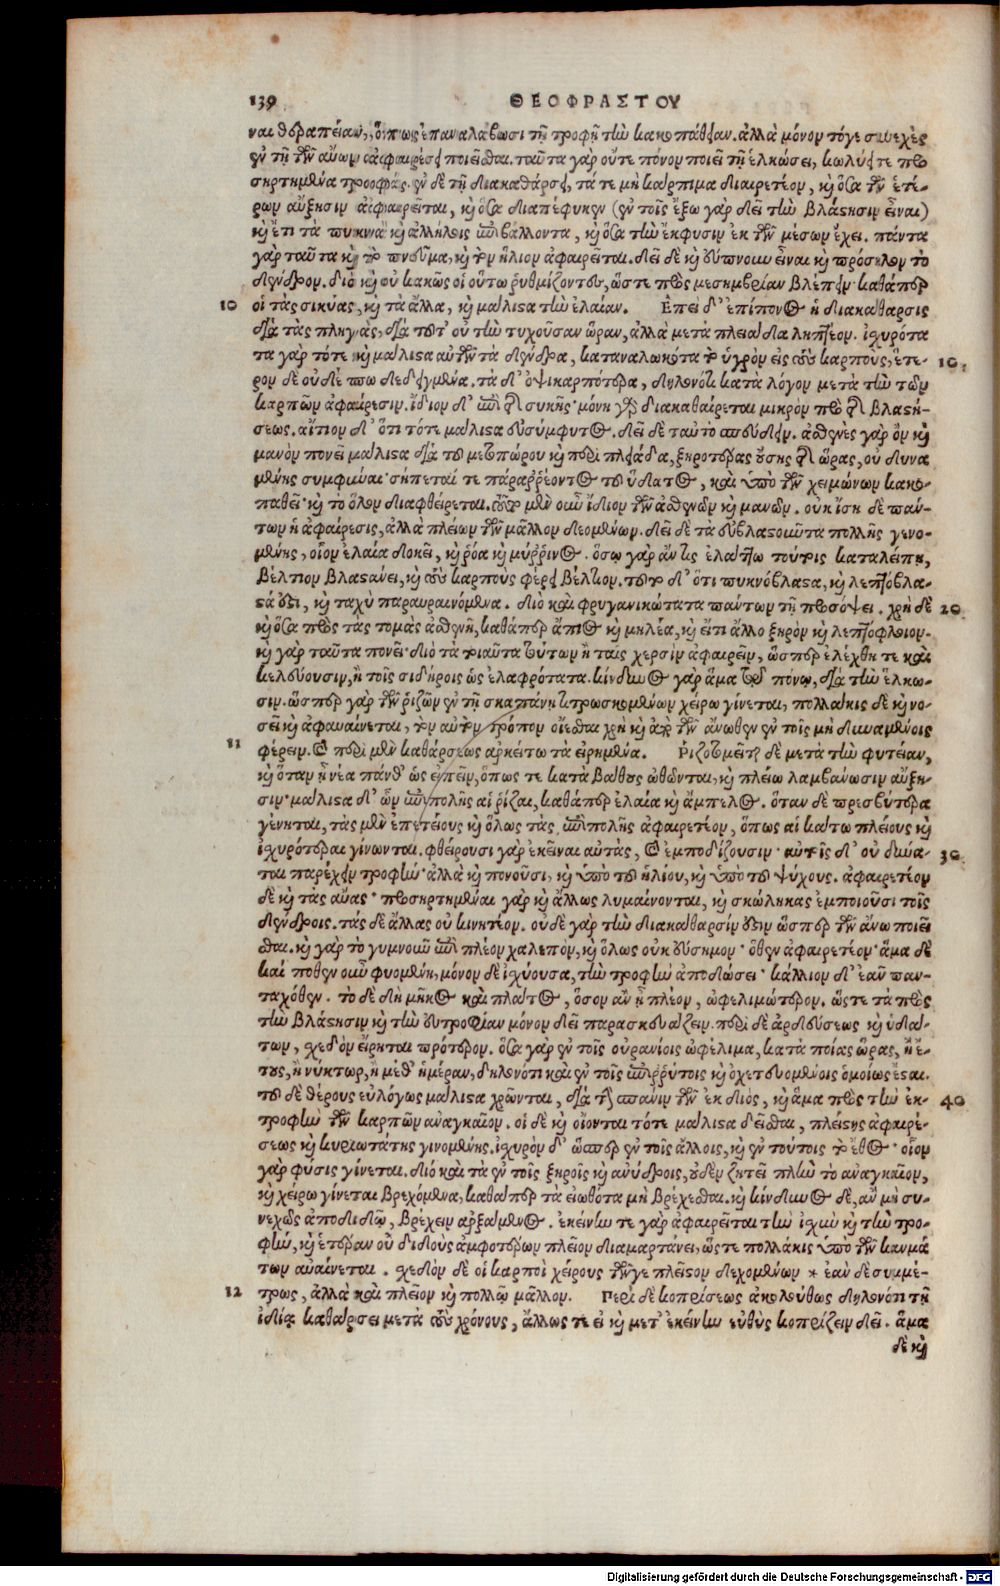 139 ΘΕΟΦΡΑΣΤΟΥ
ναι θεραπείαν, ὅπως ἐπαναλάβωσι τῇ τροφῇ τὴν κακοπάθειαν. ἀλλὰ μόνον τόγε συνεχὲς
ἐν τῇ τῶν αὔων ἀφαιρέσει ποιεῖσθαι. ταῦτα γὰρ οὔτε πόνον ποιεῖ τῇ ἑλκώσει, κωλύει τε προ
σηρτημένα τροφάς. ἐν δὲ τῇ διακαθάρσει, τά τε μὴ κάρπιμα διαιρετέον, καὶ ὅσα τῶν ἑτέ-
ρων αὔξησιν ἀφαιρεῖται, καὶ ὅσα διαπέφυκεν (ἐν τοῖς ἔξω γὰρ δεῖ τὴν βλάστησιν εἶναι)
καὶ ἔτι τὰ πυκνὰ καὶ ἀλλήλοις ἐπιβάλλοντα, καὶ ὅσα τὴν ἔκφυσιν ἐκ τῶν μέσων ἔχει. πάντα
γὰρ ταῦτα καὶ τὸ πνεῦμα, καὶ τὸν ἥλιον ἀφαιρεῖται. δεῖ δὲ καὶ εὔπνουν εἶναι καὶ πρόσειλον τὸ
δένδρον. διὸ καὶ οὐ κακῶς οἱ οὕτω ῥυθμίζοντες, ὥστε πρὸς μεσημβρίαν βλέπειν καθάπερ
10 οἱ τὰς σικύας, καὶ τὰ ἄλλα, καὶ μάλιστα τὴν ἐλαίαν. Ἐπεὶ δ' ἐπίπονος ἡ διακάθαρσις
διὰ τὰς πληγάς, διὰ τοῦτ' οὐ τὴν τυχοῦσαν ὥραν, ἀλλὰ μετὰ πλειάδα ληπτέον. ἰσχυρότα
τα γὰρ τότε καὶ μάλιστα αὐτῶν τὰ δένδρα, καταναλωκότα τὸ ὑγρὸν εἰς τοὺς καρποὺς, ἕτε- 10.
ρον δὲ οὐδέπω δεδειγμένα. τὰ δ' ὀψικαρπότερα, δηλονότι κατὰ λόγον μετὰ τὴν τῶν
καρπῶν ἀφαίρεσιν. ἴδιον δ' ἐπὶ τῆς συκῆς· μόνη γὰρ διακαθαίρεται μικρὸν πρὸ τῆς βλαστή-
σεως. αἴτιον δ' ὅτι τότε μάλιστα εὐσύμφυτος. δεῖ δὲ ταὐτὸ σπεύδειν. ἀσθενὲς γὰρ ὂν καὶ
μανὸν πονεῖ μάλιστα διὰ τοῦ μετοπώρου καὶ περὶ πλειάδα, ξηροτέρας οὔσης τῆς ὥρας, οὐ δυνα
μένης συμφῦναι· σήπεταί τε παραῤῥέοντος τοῦ ὕδατος, καὶ ὑπὸ τῶν χειμώνων κακο-
παθεῖ· καὶ τὸ ὅλον διαφθείρεται. τοῦτο μὲν οὖν ἴδιον τῶν ἀσθενῶν καὶ μανῶν. οὐκ ἴση δὲ πάν-
των ἡ ἀφαίρεσις, ἀλλὰ πλείων τῶν μᾶλλον δεομένων. δεῖ δὲ τὰ εὐβλαστοῦντα πολλῆς γενο-
μένης, οἷον ἐλαία δοκεῖ, καὶ ῥόα καὶ μύῤῥινος. ὅσῳ γὰρ ἄν τις ἐλάττω τούτοις καταλείπῃ,
βέλτιον βλαστάνει, καὶ τοὺς καρποὺς φέρει βέλτιον. τοῦτο δ' ὅτι πυκνόβλαστα, καὶ λεπτόβλα-
στά ἐστι, καὶ ταχὺ παραυαινόμενα. διὸ καὶ φρυγανικώτατα πάντων τῇ προσόψει. χρὴ δὲ 20
καὶ ὅσα πρὸς τὰς τομὰς ἀσθενῆ, καθάπερ ἄπιος καὶ μηλέα, καὶ εἴ τι ἄλλο ξηρὸν καὶ λεπτόφλοιον.
καὶ γὰρ ταῦτα πονεῖ· διὸ τὰ τοιαῦτα τούτων ἢ ταῖς χερσὶν ἀφαιρεῖν, ὥσπερ ἐλέχθη τε καὶ
κελεύουσιν, ἢ τοῖς σιδήροις ὡς ἐλαφρότατα. κίνδυνος γὰρ ἅμα τῷ πόνῳ, διὰ τὴν ἕλκω-
σιν. ὥσπερ γὰρ τῶν ῥιζῶν ἐν τῇ σκαπάνῃ τιτρωσκομένων χείρω γίνεται, πολλάκις δὲ καὶ νο-
σεῖ καὶ ἀφαυαίνεται, τὸν αὐτὸν τρόπον οἴεσθαι χρὴ καὶ ἀπὸ τῶν ἄνωθεν ἐν τοῖς μὴ δυναμένοις
11 φέρειν. Καὶ περὶ μὲν καθάρσεως ἀρκείτω τὰ εἰρημένα. Ῥιζοτομεῖται δὲ μετὰ τὴν φυτείαν,
καὶ ὅταν ᾖ νέα πάνθ' ὡς εἰπεῖν, ὅπως τε κατὰ βάθους ὠθῶνται, καὶ πλείω λαμβάνωσιν αὔξη-
σιν· μάλιστα δ' ὧν ἐπιπολῆς αἱ ῥίζαι, καθάπερ ἐλαία καὶ ἄμπελος. ὅταν δὲ πρεσβύτερα
γένηται, τὰς μὲν ἐπετείους καὶ ὅλως τὰς ἐπιπολῆς ἀφαιρετέον, ὅπως αἱ κάτω πλείους καὶ
ἰσχυρότεραι γίνωνται. φθείρουσι γὰρ ἐκεῖναι αὐτὰς, καὶ ἐμποδίζουσιν· αὐτοῖς δ' οὐ δύνα- 30.
ται παρέχειν τροφὴν· ἀλλὰ καὶ πονοῦσι, καὶ ὑπὸ τοῦ ἡλίου, καὶ ὑπὸ τοῦ ψύχους. ἀφαιρετέον
δὲ καὶ τὰς αὔας· προσηρτημέναι γὰρ καὶ ἄλλως λυμαίνονται, καὶ σκώληκας ἐμποιοῦσι τοῖς
δένδροις. τὰς δὲ ἄλλας οὐ κινητέον. οὐδὲ γὰρ τὴν διακάθαρσίν ἐστιν ὥσπερ τῶν ἄνω ποιεῖ
σθαι. καὶ γὰρ τὸ γυμνοῦν ἐπὶ πλέον χαλεπὸν, καὶ ὅλως οὐκ εὔσημον· ὅθεν ἀφαιρετέον· ἅμα δὲ
καί ποθεν οὖν φυομένη, μόνον δὲ ἰσχύουσα, τὴν τροφὴν ἀποδώσει· κάλλιον δ' ἐὰν παν-
ταχόθεν. τὸ δὲ δὴ μῆκος καὶ πλάτος, ὅσον ἂν ᾖ πλέον, ὠφελιμώτερον. ὥστε τὰ πρὸς
τὴν βλάστησιν καὶ τὴν εὐτροφίαν μόνον δεῖ παρασκευάζειν. περὶ δὲ ἀρδεύσεως καὶ ὑδά-
των, σχεδὸν εἴρηται πρότερον. ὅσα γὰρ ἐν τοῖς οὐρανίοις ὠφέλιμα, κατὰ ποίας ὥρας, ἢ ἔ-
τους, ἢ νύκτωρ, ἢ μεθ' ἡμέραν, δηλονότι κἀν τοῖς ἐπιῤῥύτοις καὶ ὀχετευομένοις ὁμοίως ἔσται.
τοῦ δὲ θέρους εὐλόγως μάλιστα χρῶνται, διά τε σπάνιν τῶν ἐκ διὸς, καὶ ἅμα πρὸς τὴν ἐκ- 40
τροφὴν τῶν καρπῶν ἀναγκαῖον. οἱ δὲ καὶ οἴονται τότε μάλιστα δεῖσθαι, πλείστης ἀφαιρέ-
σεως καὶ κυριωτάτης γινομένης. ἰσχυρὸν δ' ὥσπερ ἐν τοῖς ἄλλοις, καὶ ἐν τούτοις τὸ ἔθος· οἷον
γὰρ φύσις γίνεται. διὸ καὶ τὰ ἐν τοῖς ξηροῖς καὶ ἀνύδροις, οὐδὲν ζητεῖ πλὴν τὸ ἀναγκαῖον,
καὶ χείρω γίνεται βρεχόμενα, καθάπερ τὰ εἰωθότα μὴ βρέχεσθαι. καὶ κίνδυνος δὲ, ἂν μὴ συ-
νεχῶς ἀποδιδῷ, βρέχειν ἀρξάμενος. ἐκείνην τε γὰρ ἀφαιρεῖται τὴν ἰσχὺν καὶ τὴν τρο-
φὴν, καὶ ἑτέραν οὐ διδοὺς ἀμφοτέρων πλεῖον διαμαρτάνει, ὥστε πολλάκις ὑπὸ τῶν καυμά
των αὐαίνεται. σχεδὸν δὲ οἱ καρποὶ χείρους τῶν γε πλεῖστον δεχομένων * ἐὰν δὲ συμμέ-
12 τρως, ἀλλὰ καὶ πλεῖον καὶ πολλῷ μᾶλλον. Περὶ δὲ κοπρίσεως ἀκολούθως δηλονότι τῇ
ἰδίᾳ καθάρσει μετὰ τοὺς χρόνους, ἄλλως τε εἰ καὶ μετ' ἐκείνην εὐθὺς κοπρίζειν δεῖ. ἅμα
δὲ καὶ
Digitalisierung gefördert durch die Deutsche Forschungsgemeinschaft - DFG